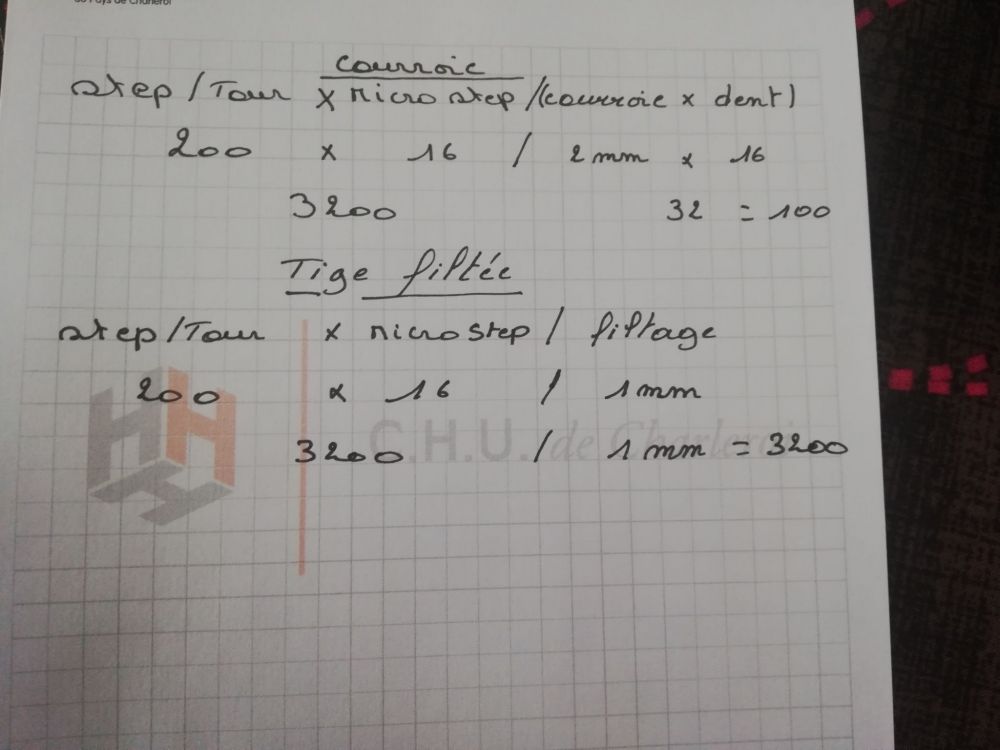 du Pays de Charleroi
courroie
step/Tour × microstep/(courroie × dent)
200 × 16 / 2mm × 16
3200 32 = 100
Tige filtée
step/Tour × microstep / filtage
200 × 16 / 1mm
C.H.U. de Charleroi
3200 / 1mm = 3200